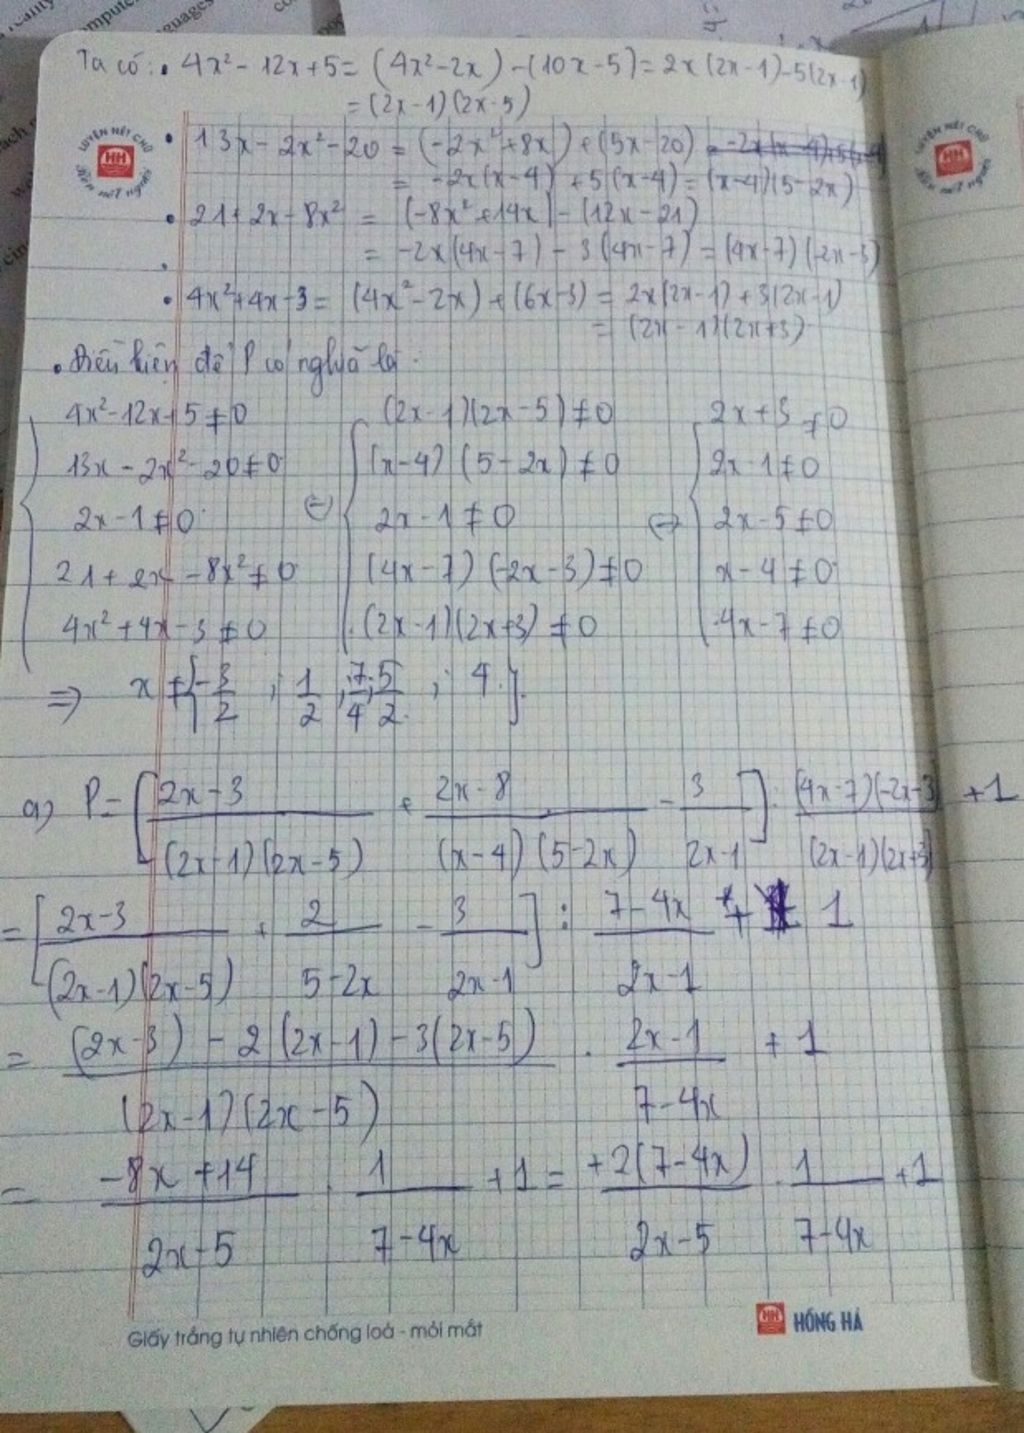 Ta có: • 4x² - 12x + 5 = (4x² - 2x) - (10x - 5) = 2x(2x-1) - 5(2x-1)
= (2x-1)(2x-5)
• 13x - 2x² - 20 = (-2x² + 8x) + (5x - 20)
= -2x(x-4) + 5(x-4) = (x-4)(5-2x)
• 21 + 2x - 8x² = (-8x² + 14x) - (12x - 21)
= -2x(4x-7) - 3(4x-7) = (4x-7)(-2x-3)
• 4x² + 4x - 3 = (4x² - 2x) + (6x-3) = 2x(2x-1) + 3(2x-1)
= (2x-1)(2x+3)
• Điều kiện để P có nghĩa là
4x² - 12x + 5 ≠ 0 (2x-1)(2x-5) ≠ 0 2x+3 ≠ 0
13x - 2x² - 20 ≠ 0 (x-4)(5-2x) ≠ 0 2x-1 ≠ 0
2x-1 ≠ 0 ⇔ 2x-1 ≠ 0 ⇔ 2x-5 ≠ 0
21 + 2x - 8x² ≠ 0 (4x-7)(-2x-3) ≠ 0 x-4 ≠ 0
4x² + 4x - 3 ≠ 0 (2x-1)(2x+3) ≠ 0 4x-7 ≠ 0
⇒ x ≠ {-3/2; 1/2; 7/4; 5/2; 4}
a) P = [(2x-3)/((2x-1)(2x-5)) + (2x-8)/((x-4)(5-2x)) - 3/(2x-1)] : ((4x-7)(-2x-3))/((2x-1)(2x+3)) + 1
= [(2x-3)/((2x-1)(2x-5)) + 2/(5-2x) - 3/(2x-1)] : (7-4x)/(2x-1) + 1
= ((2x-3) - 2(2x-1) - 3(2x-5))/((2x-1)(2x-5)) . (2x-1)/(7-4x) + 1
= (-8x+14)/(2x-5) . 1/(7-4x) + 1 = (+2(7-4x))/(2x-5) . 1/(7-4x) + 1
Giấy trắng tự nhiên chống loá - mỏi mắt
HỒNG HÀ
LUYỆN NÉT CHỮ
Rèn nết người
LUYỆN NÉT CHỮ
Rèn nết người